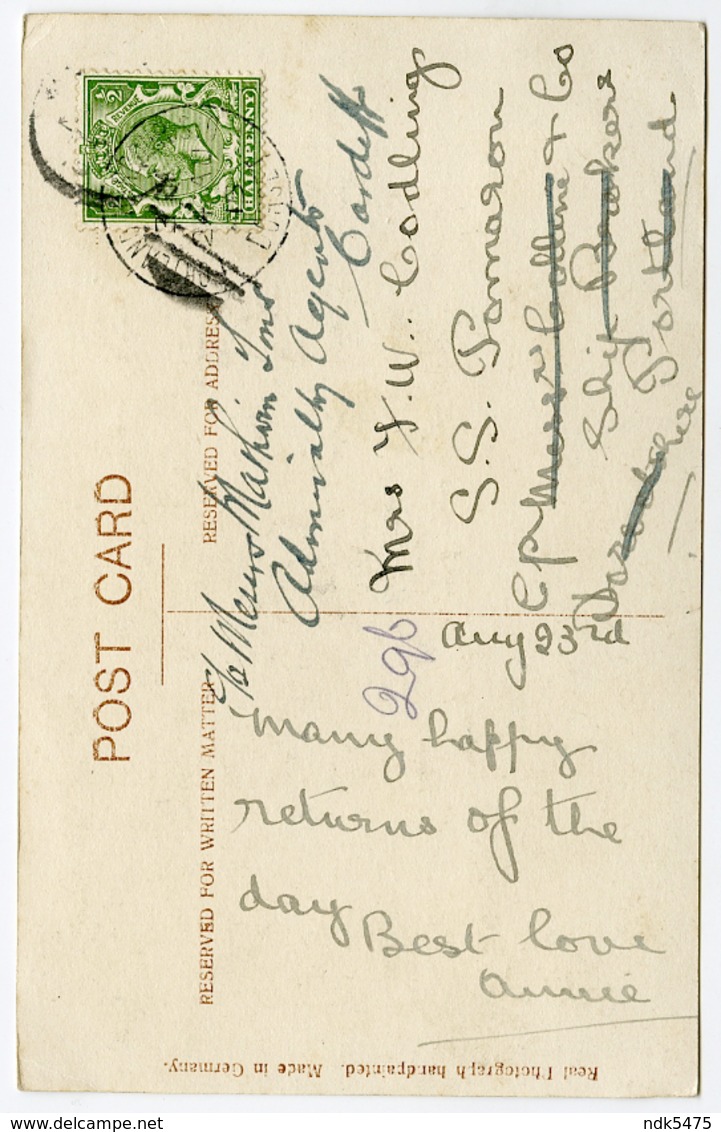 POST CARD
RESERVED FOR WRITTEN MATTER
RESERVED FOR ADDRESS
½
REVENUE
HALFPENNY
PORTLAND
DORSET
C/o Messrs Mathwin & Sons
Admiralty Agents
Cardiff
Mrs J. W. Codling
S.S. Pomaron
C/o Messrs Collins & Co
Ship Brokers
Portland
Dorsetshire
296
Aug 23rd
Many happy
returns of the
day
Best love
Annie
Real Photograph handpainted. Made in Germany.
ndk5475